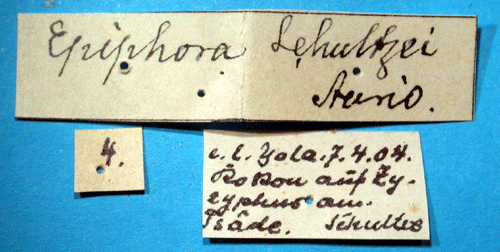 Epiphora Schultzei
Auriv.
4.
e. l. Yola. 7. 4. 04.
Kokon auf Zy-
zyphus am
Tsâde. Schultze